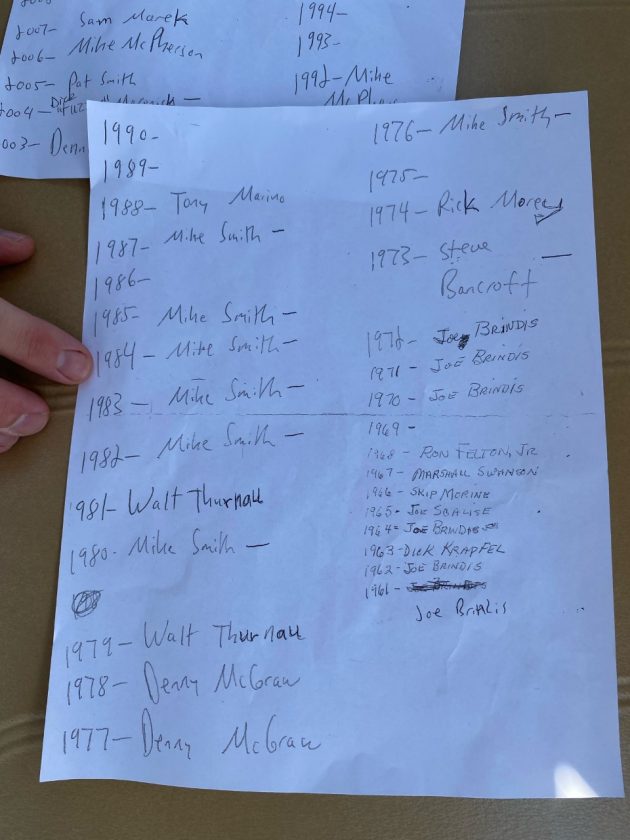 2007- Sam Marek
2006- Mike McPherson
2005- Pat Smith
2004-
2003- Denn
1994-
1993-
1992- Mike
McPhers
1990-
1989-
1988- Tony Marino
1987- Mike Smith -
1986-
1985- Mike Smith -
1984- Mike Smith -
1983- Mike Smith -
1982- Mike Smith -
1981- Walt Thurnau
1980- Mike Smith -
1979- Walt Thurnau
1978- Denny McGraw
1977- Denny McGraw
1976- Mike Smith -
1975-
1974- Rick
1973- Steve -
Bancroft
1972- Joe BRINDIS
1971- JOE BRINDIS
1970- JOE BRINDIS
1969-
1968- RON FELTON, JR
1967- MARSHALL SWANSON
1966- SKIP MORINE
1965- JOE SCALISE
1964- JOE BRINDIS
1963- DICK KRAPFEL
1962- JOE BRINDIS
1961-
Joe